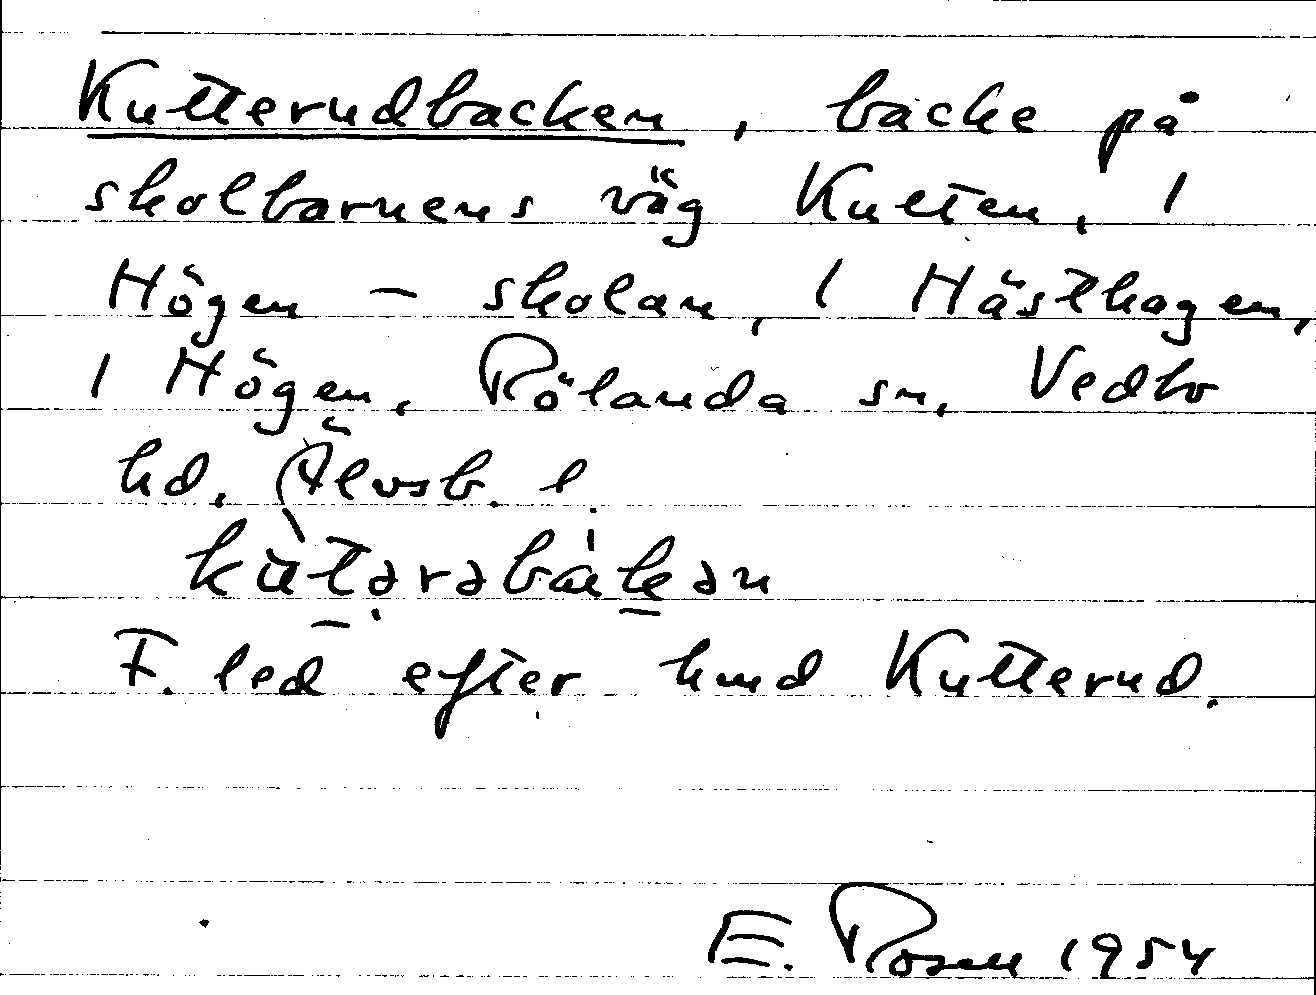 Kutterudbacken, backe på
skolbarnens väg Kutten, 1
Högen - skolan, 1 Hästhagen,
1 Högen, Rölanda sn, Vedbo
hd. Älvsb. l.
kùtərəbákən
F. led efter hmd Kutterud.
E. Rosell 1954